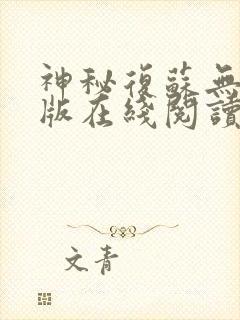 神秘復蘇無
版在綫閱讀
文青